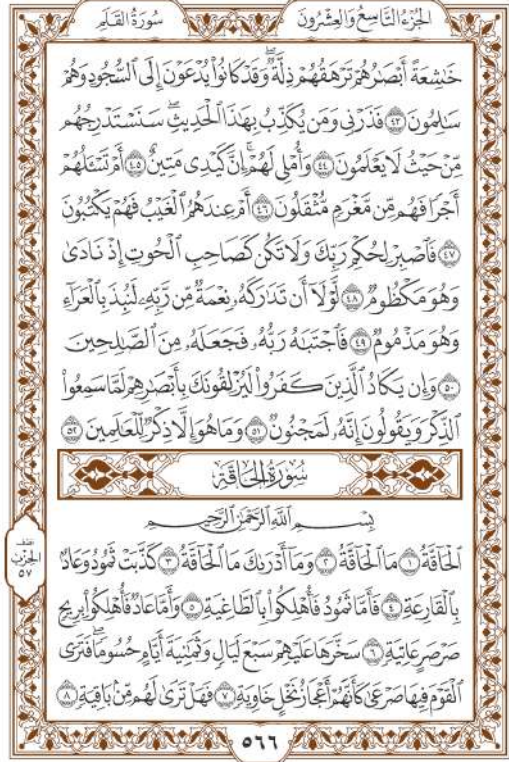 الجُزْءُ التَّاسِعُ وَالعِشْرُونَ سُورَةُ القَلَمِ
خَٰشِعَةً أَبْصَٰرُهُمْ تَرْهَقُهُمْ ذِلَّةٌۖ وَقَدْ كَانُوا۟ يُدْعَوْنَ إِلَى ٱلسُّجُودِ وَهُمْ
سَٰلِمُونَ ٤٣ فَذَرْنِى وَمَن يُكَذِّبُ بِهَٰذَا ٱلْحَدِيثِۖ سَنَسْتَدْرِجُهُم
مِّنْ حَيْثُ لَا يَعْلَمُونَ ٤٤ وَأُمْلِى لَهُمْۚ إِنَّ كَيْدِى مَتِينٌ ٤٥ أَمْ تَسْـَٔلُهُمْ
أَجْرًا فَهُم مِّن مَّغْرَمٍ مُّثْقَلُونَ ٤٦ أَمْ عِندَهُمُ ٱلْغَيْبُ فَهُمْ يَكْتُبُونَ
٤٧ فَٱصْبِرْ لِحُكْمِ رَبِّكَ وَلَا تَكُن كَصَاحِبِ ٱلْحُوتِ إِذْ نَادَىٰ
وَهُوَ مَكْظُومٌ ٤٨ لَّوْلَآ أَن تَدَٰرَكَهُۥ نِعْمَةٌ مِّن رَّبِّهِۦ لَنُبِذَ بِٱلْعَرَآءِ
وَهُوَ مَذْمُومٌ ٤٩ فَٱجْتَبَٰهُ رَبُّهُۥ فَجَعَلَهُۥ مِنَ ٱلصَّٰلِحِينَ
٥٠ وَإِن يَكَادُ ٱلَّذِينَ كَفَرُوا۟ لَيُزْلِقُونَكَ بِأَبْصَٰرِهِمْ لَمَّا سَمِعُوا۟
ٱلذِّكْرَ وَيَقُولُونَ إِنَّهُۥ لَمَجْنُونٌ ٥١ وَمَا هُوَ إِلَّا ذِكْرٌ لِّلْعَٰلَمِينَ ٥٢
سُورَةُ الحَاقَّةِ
بِسْمِ ٱللَّهِ ٱلرَّحْمَٰنِ ٱلرَّحِيمِ
ٱلْحَآقَّةُ ١ مَا ٱلْحَآقَّةُ ٢ وَمَآ أَدْرَىٰكَ مَا ٱلْحَآقَّةُ ٣ كَذَّبَتْ ثَمُودُ وَعَادٌۢ
بِٱلْقَارِعَةِ ٤ فَأَمَّا ثَمُودُ فَأُهْلِكُوا۟ بِٱلطَّاغِيَةِ ٥ وَأَمَّا عَادٌ فَأُهْلِكُوا۟ بِرِيحٍ
صَرْصَرٍ عَاتِيَةٍ ٦ سَخَّرَهَا عَلَيْهِمْ سَبْعَ لَيَالٍ وَثَمَٰنِيَةَ أَيَّامٍ حُسُومًا فَتَرَى
ٱلْقَوْمَ فِيهَا صَرْعَىٰ كَأَنَّهُمْ أَعْجَازُ نَخْلٍ خَاوِيَةٍ ٧ فَهَلْ تَرَىٰ لَهُم مِّنۢ بَاقِيَةٍ ٨
نصف
الحزب
٥٧
٥٦٦